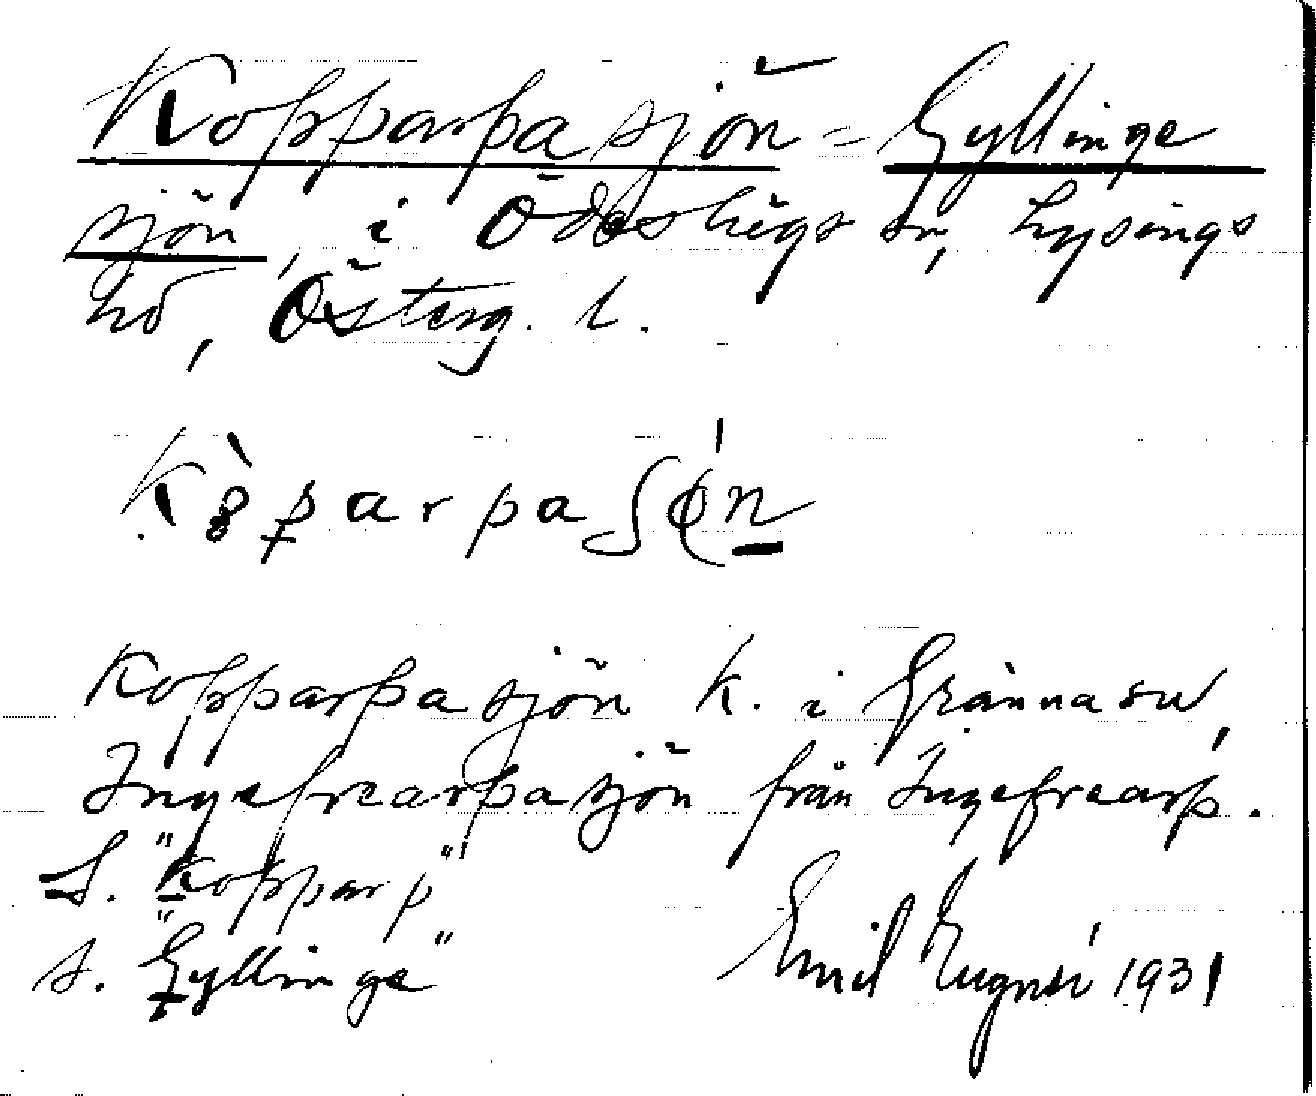 Kopparpasjön = Gyllinge
sjön, i Ödeshögs sn, Lysings
hd, Österg. l.
Kopparpasjön k. i Grännasu,
Ingefrearpasjön från Ingefrearp.
S. "Kopparp"
s. "Gyllinge"
Emil 1931